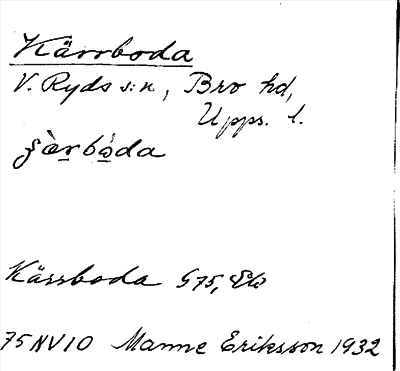 Kärrboda
V. Ryds s:n, Bro hd,
Upps. l.
Kärrboda G75, Ek
75 NV10 Manne Eriksson 1932